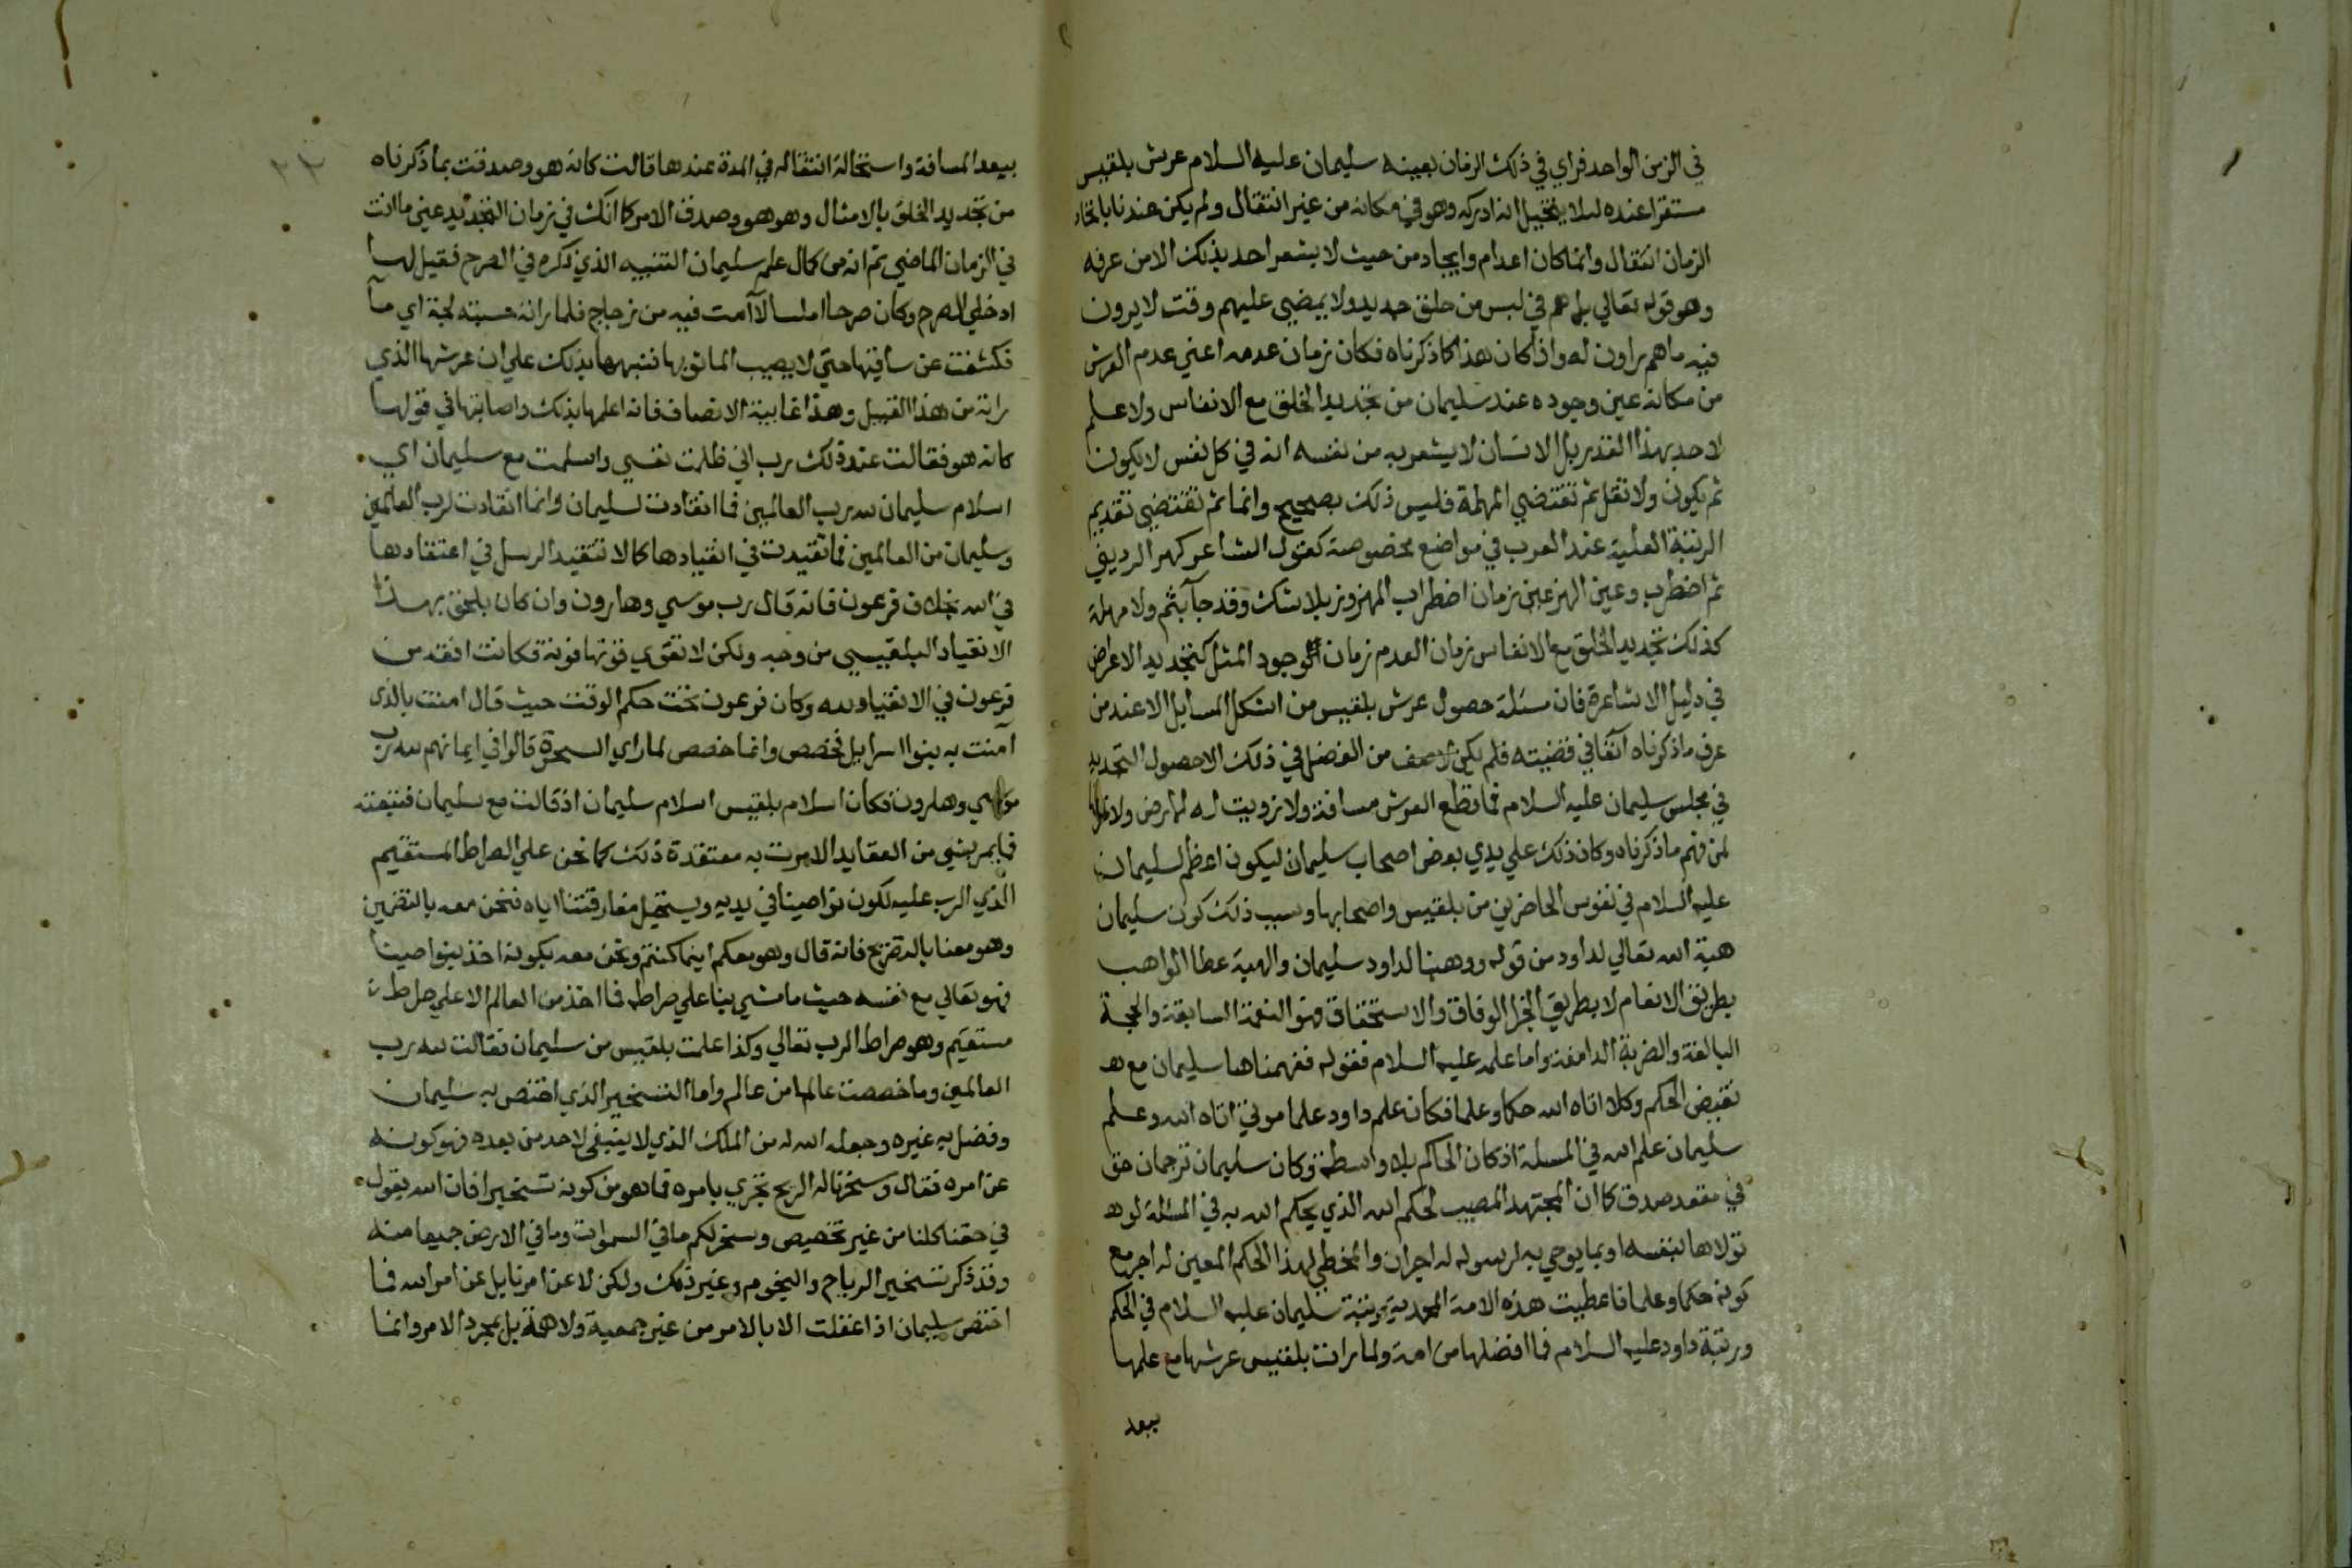 في الزمن الواحد فراي في ذلك الزمان بعينه سليمان عليه السلام عرش بلقيس
مستقرا عنده ليلا يتخيل انه ادركه وهو في مكانه من غير انتقال ولم يكن عندنا باتحاد
الزمان انتقال وانما كان اعدام وايجاد من حيث لا يشعر احد بذلك الا من عرفه
وهو قوله تعالي بل هم في لبس من خلق جديد ولا يمضي عليهم وقت لا يرون
فيه ما هم راون له واذا كان هذا كما ذكرناه فكان زمان عدمه اعني عدم العرش
من مكانه عين وجوده عند سليمان من تجديد الخلق مع الانفاس ولا علم
لاحد بهذا القدر بل الانسان لا يشعر به من نفسه انه في كل نفس لا يكون
ثم يكون ولا تقل ثم تقتضي المهلة فليس ذلك بصحيح وانما ثم تقتضي تقديم
الرتبة العلية عند العرب في مواضع مخصوصة كقول الشاعر كهز الرديني
ثم اضطرب وعين الهز عين زمان اضطراب المهزوز بلا شك وقد جآ بثم ولا مهلة
كذلك تجديد الخلق مع الانفاس زمان العدم زمان الوجود المثل كتجديد الاعراض
في دليل الاشاعرة فان مسئلة حصول عرش بلقيس من اشكل المسايل الا عند من
عرف ما ذكرناه آنفا في قضيته فلم يكن لاصف من الفضل في ذلك الا حصول التجديد
في مجلس سليمان عليه السلام فما قطع العرش مسافة ولا زويت له ارض ولا خرقها
لمن فهم ما ذكرناه وكان ذلك علي يدي بعض اصحاب سليمان ليكون اعظم لسليمان
عليه السلام في نفوس الحاضرين من بلقيس واصحابها وسبب ذلك كون سليمان
هبة الله تعالي لداود من قوله ووهبنا لداود سليمان والهبة عطا الواهب
بطريق الانعام لا بطريق الجزا الوفاق والاستحقاق فهو النعمة السابقة والحجة
البالغة والضربة الدامغة واما علمه عليه السلام فقوله ففهمناها سليمان مع
نقيض الحكم وكلا اتاه الله حكما وعلما فكان علم داود علما موتي اتاه الله وعلم
سليمان علم الله في المسلة اذ كان الحاكم بلا واسطة وكان سليمان ترجمان حق
في مقعد صدق كما ان المجتهد المصيب لحكم الله الذي يحكم الله به في المسئلة لو
تولاها بنفسه او بما يوحي به لرسوله له اجران والمخطي لهذا الحكم المعين له اجر مع
كونه حكما وعلما فاعطيت هذه الامة المحمدية رتبة سليمان عليه السلام في الحكم
ورتبة داود عليه السلام فما افضلها من امة ولما رات بلقيس عرشها مع علمها
ببعد
ببعد المسافة واستحالة انتقاله في المدة عندها قالت كانه هو وصدقت بما ذكرناه
من تجديد الخلق بالامثال وهو هو وصدق الامر كما انك في زمان التجديد عين ما انت
في الزمان الماضي ثم انه من كمال علم سليمان التنبيه الذي ذكره في الصرح فقيل لها
ادخلي الصرح وكان صرحا املسا لا آمت فيه من زجاج فلما راته حسبته لجة اي مآ
فكشفت عن ساقيها حتي لا يصيب الما ثوبها فنبهها بذلك علي ان عرشها الذي
راته من هذا القبيل وهذا غاية الانصاف فانه اعلمها بذلك واصابتها في قولها
كانه هو فقالت عند ذلك رب اني ظلمت نفسي واسلمت مع سليمان اي
اسلام سليمان لله رب العالمين فما انقادت لسليمان وانما انقادت لرب العالمين
وسليمان من العالمين فما تقيدت في انقيادها كما لا تتقيد الرسل في اعتقادها
في الله بخلاف فرعون فانه قال رب موسي وهارون وان كان يلحق بهذا
الانقياد البلقيسي من وجه ولكن لا تقوي قوتها قوته فكانت افقه من
فرعون في الانقياد لله وكان فرعون تحت حكم الوقت حيث قال امنت بالذي
آمنت به بنوا اسرايل فخصص وانما خصص لما راي السحرة قالوا في ايمانهم لله رب
موسي وهارون فكان اسلام بلقيس اسلام سليمان اذ قالت مع سليمان فتبعته
فما يمر بشي من العقايد الا مرت به معتقدة ذلك كما نحن علي الصراط المستقيم
الذي الرب عليه لكون نواصينا في يديه ويستحيل مفارقتنا اياه فنحن معه بالتضمين
وهو معنا بالتصريح فانه قال وهو معكم اينما كنتم ونحن معه بكونه اخذ بنواصينا
فهو تعالي مع نفسه حيث ما مشي بنا علي صراطه فما احد من العالم الا علي صراط
مستقيم وهو صراط الرب تعالي وكذا علمت بلقيس من سليمان فقالت لله رب
العالمين وما خصصت عالما من عالم واما التسخير الذي اختص به سليمان
وفضل به غيره وجعله الله له من الملك الذي لا ينبغي لاحد من بعده فهو كونه
عن امره فقال وسخرنا له الريح تجري بامره فما هو من كونه تسخيرا فان الله يقول
في حقنا كلنا من غير تخصيص وسخر لكم ما في السموات وما في الارض جميعا منه
وقد ذكر تسخير الرياح والنجوم وغير ذلك ولكن لا عن امرنا بل عن امر الله فما
اختص سليمان اذا عقلت الا بالامر من غير جمعية ولا همة بل بمجرد الامر وانما